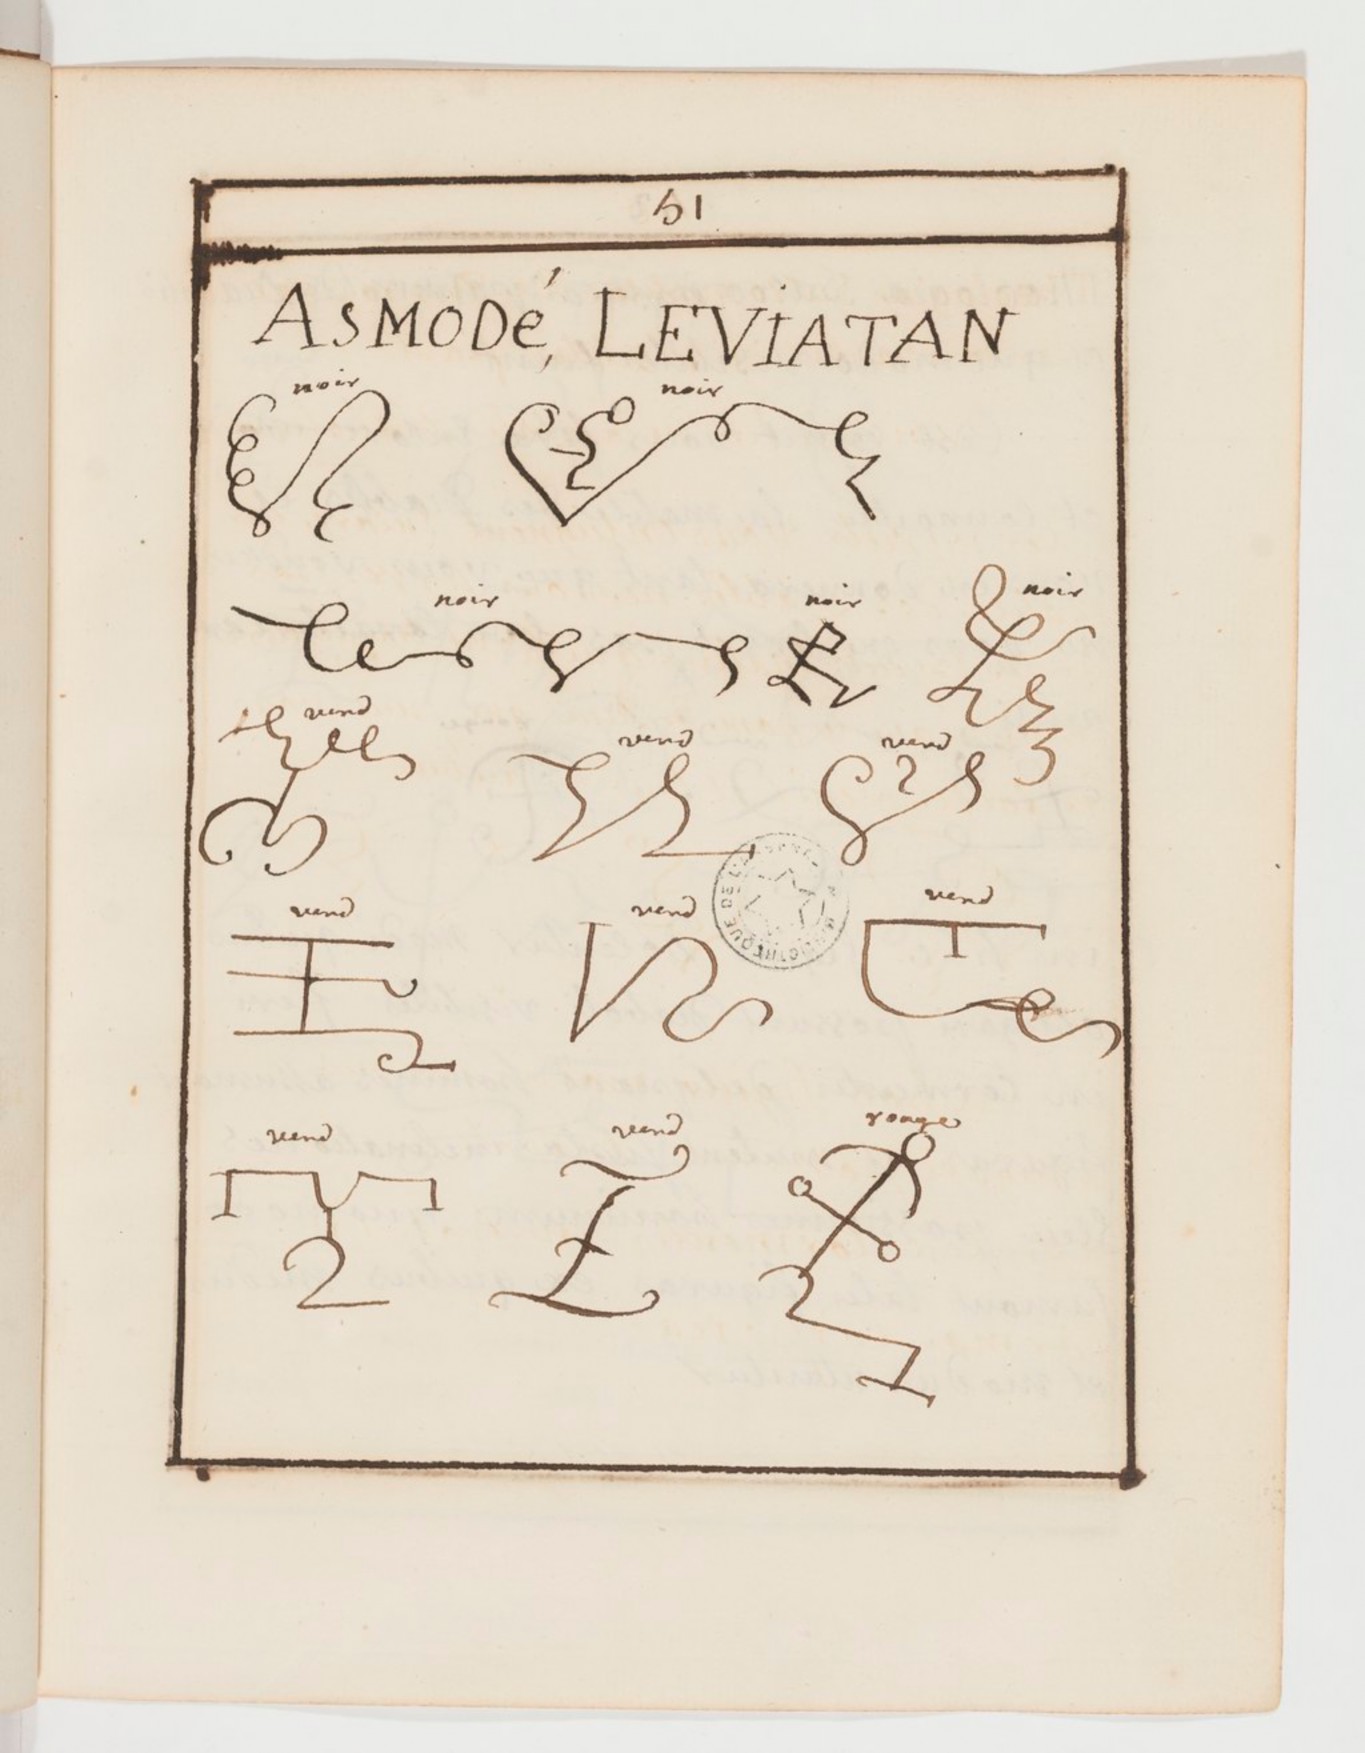 ASMODé, LEVIATAN
noir noir
noir noir noir
verd verd verd
verd verd verd
verd verd rouge